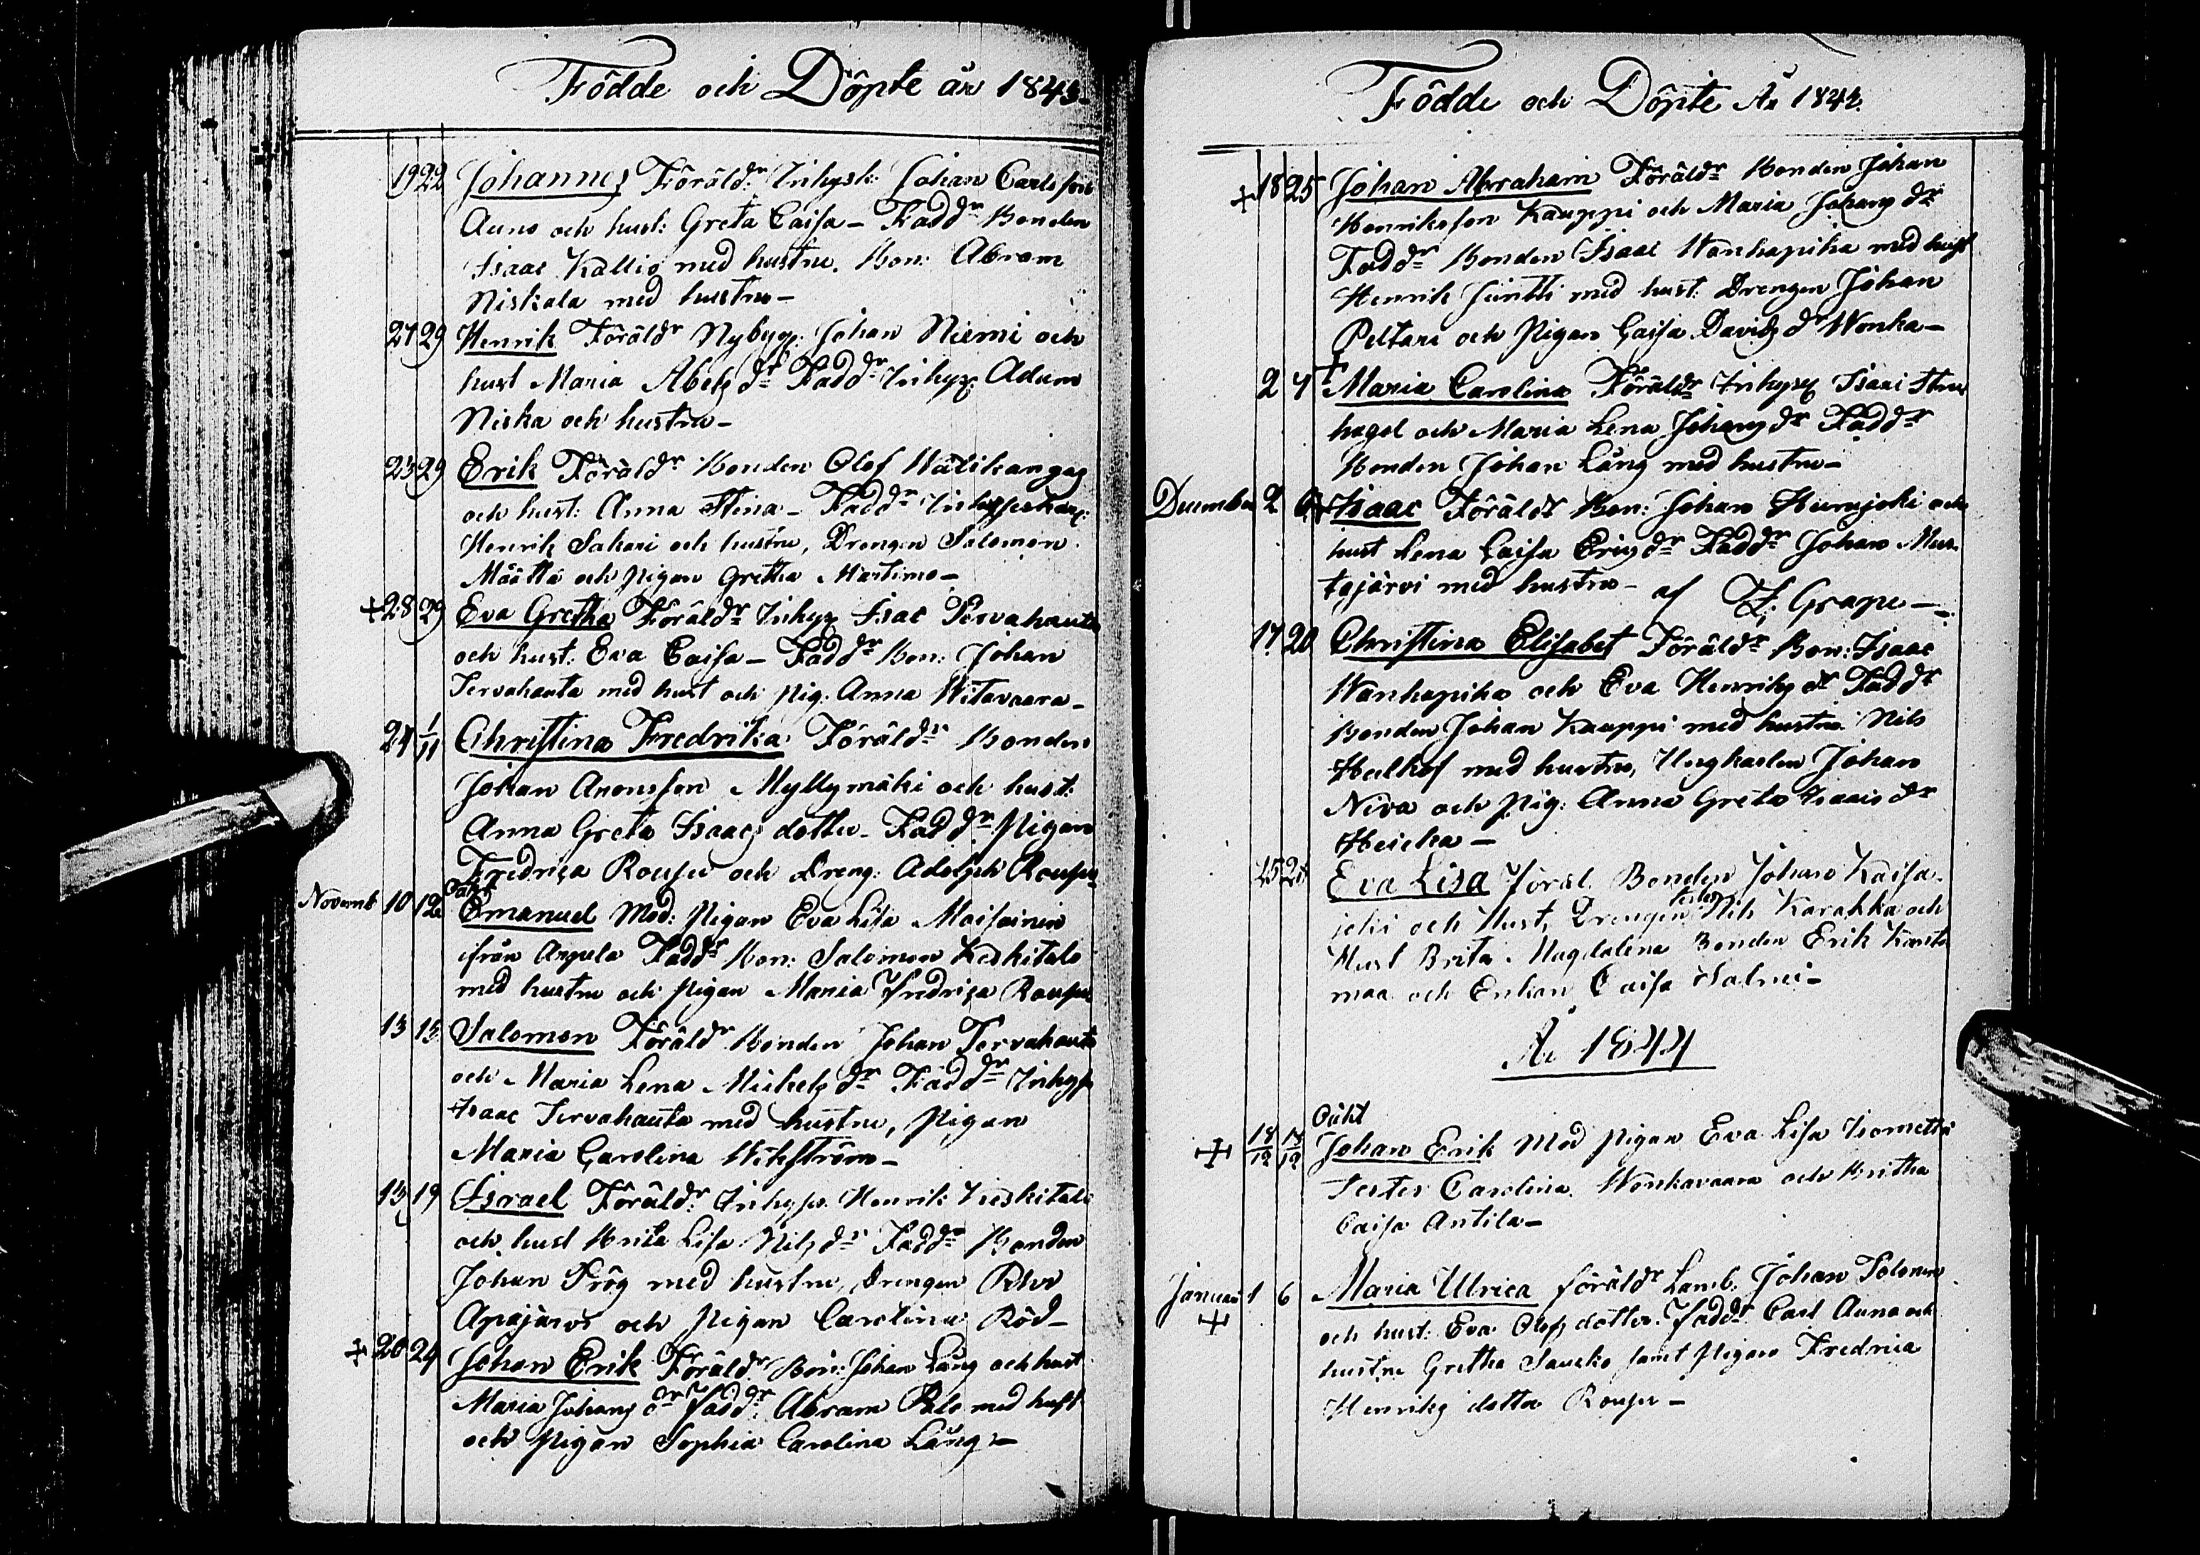 Födde och Döpte år 1843.
19 22 Johannes Föräld:r Inhys: Johan Carlsson
Auno och hust: Greta Caisa – Fadd:r Bonden
Isaac Kallio med hustru. Bon: Abram
Niskala med hustru –
27 29 Henrik Föräld:r Nybygg: Johan Niemi och
hust Maria Abels d:r Fadd:r Inhys: Adam
Niska och hustru –
23 29 Erik Föräld:r Bonden Olof Wälikangas
och hust: Anna Stina – Fadd:r
Henrik Sakari och hustru, Drengen Salomon
Määttä och Pigan Gretha Martimo –
+ 28 29 Eva Gretha Föräld:r Inhys Isac Tervahauta
och hust: Eva Caisa – Fadd:r Bon: Johan
Tervahauta med hust och Pig: Anna Witavaara –
24 1/11 Christina Fredrika Föräld:r Bonden
Johan Aronsson Myllymäki och hust:
Anna Greta Isaacs dotter – Fadd:r Pigan
Fredrica Roufu och Dreng: Adolph Roufu
Oäkt
Novemb 10 12 Emanuel Mod: Pigan Eva Lisa Moisainen
ifrån Fadd:r Bon: Salomon Keskitalo
med hustru och Pigan Maria Fredrica Roufu
13 13 Salomon Föräld Bonden Johan Tervahauta
och Maria Lena Michels d:r Fadd:r Inhys
Isaac Tervahauta med hustru, Pigan
Maria Carolina Wikström –
13 19 Israel Föräld:r Inhys Henrik Keskitalo
och hust Brita Lisa Nils d:r Fadd:r Bonden
Johan Frög med hustru, Drengen
Apajärvi och Pigan Carolina Röd –
+ 20 24 Johan Erik Föräld:r Bon: Johan Lång och hust
Maria Johans d:r Fadd:r Abram Palo med hust
och Pigan Sophia Carolina Lång –
Födde och Döpte År 1843.
+ 18 25 Johan Abraham Föräld:r Bonden Johan
Henriksson Kauppi och Maria Johans d:r
Fadd:r Bonden Isaac Wanhapiha med hust
Henrik Juntti med hust: Drengen Johan
Peltari och Pigan Caisa Davids d:r Wonka –
2 4 + Maria Carolina Föräld:r Inhys Isaac Stru
hagel och Maria Lena Johans d:r Fadd:r
Bonden Johan Lång med hustru –
December 2 Isaac Föräld:r Bon: Johan Hurujoki och
hust Lena Caisa Erics d:r Fadd:r Johan Mus
tajärvi med hustru – af Z: Grape –
17 20 Christina Elisabet Föräld:r Bon: Isaac
Wanhapiha och Eva Henriks d:r Fadd:r
Bonden Johan Kauppi med hustru Nils
Heikkof med hustru, Ungkarlen Johan
Niva och Pig: Anna Greta Isaacs d:r
Heicka –
25 26 Eva Lisa Föräl. Bonden Johan Kaisa-
joki och Hust, Drengen Testes Nils Karakka och
Hust Brita Magdalena Bonden Erik Kanta
maa och Enkan Caisa Salmi –
År 1844
Oäkt
+ 14/12 17/12 Johan Erik Mod Pigan Eva Lisa Isometsä
Testes Carolina Wonkavaara och Britha
Caisa Antila –
Januari + 1 6 Maria Ulrica föräld:r Lamb: Johan Tolonen
och hust: Eva Olofs dotter Fadd:r Carl Auna och
hustru Gretha Saucko samt Pigan Fredrica
Henriks dotter Roufu –